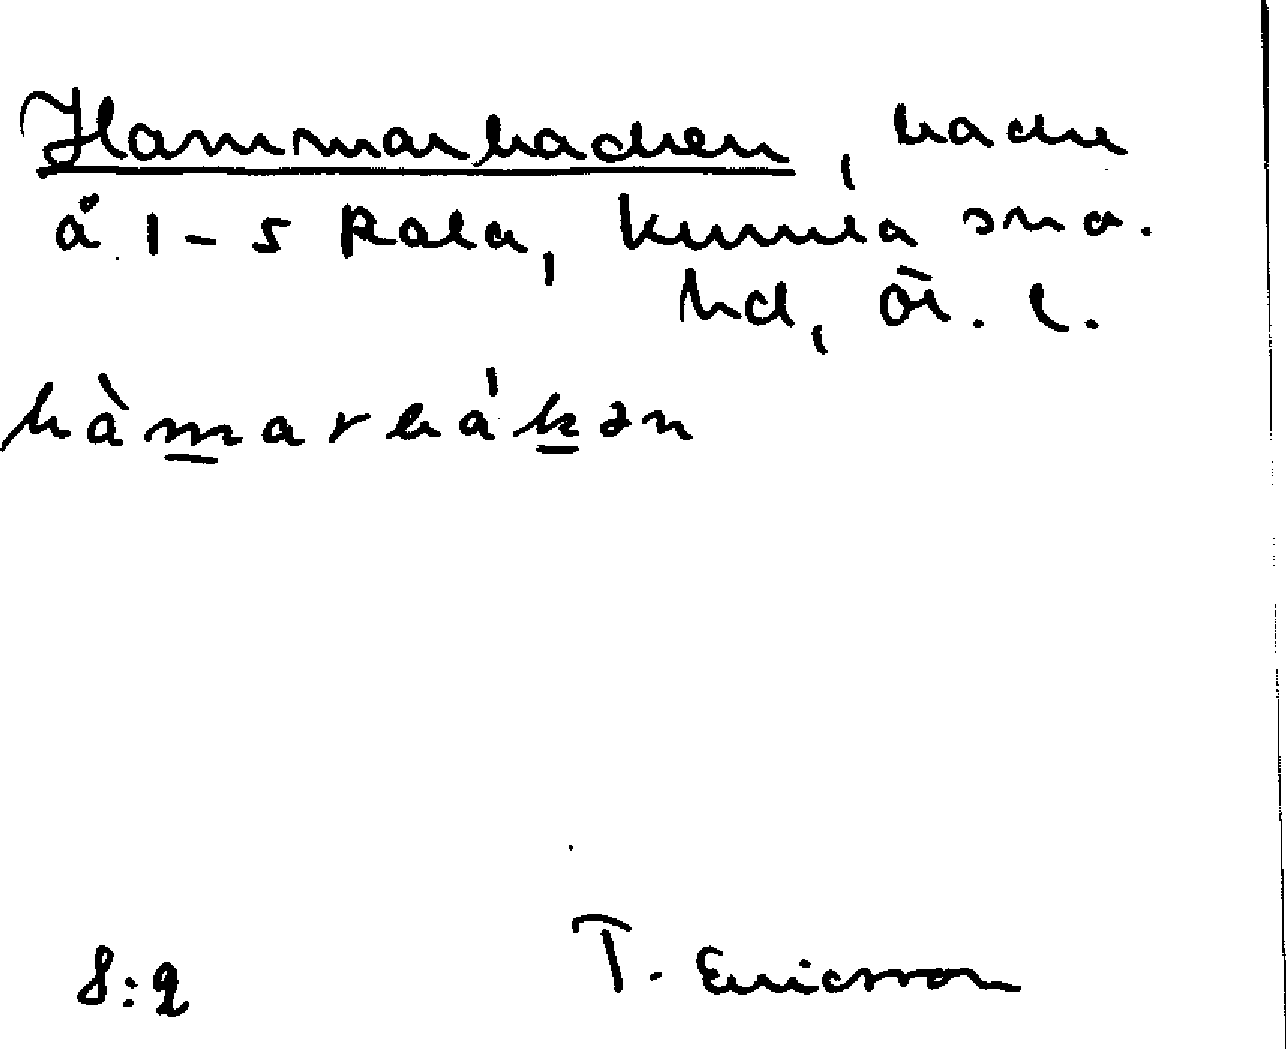 Hammarbacken, backe
å 1-5 Rala, Kumla sn o.
hd, Ör. l.
hàmarbákən
8:2
T. Ericsson